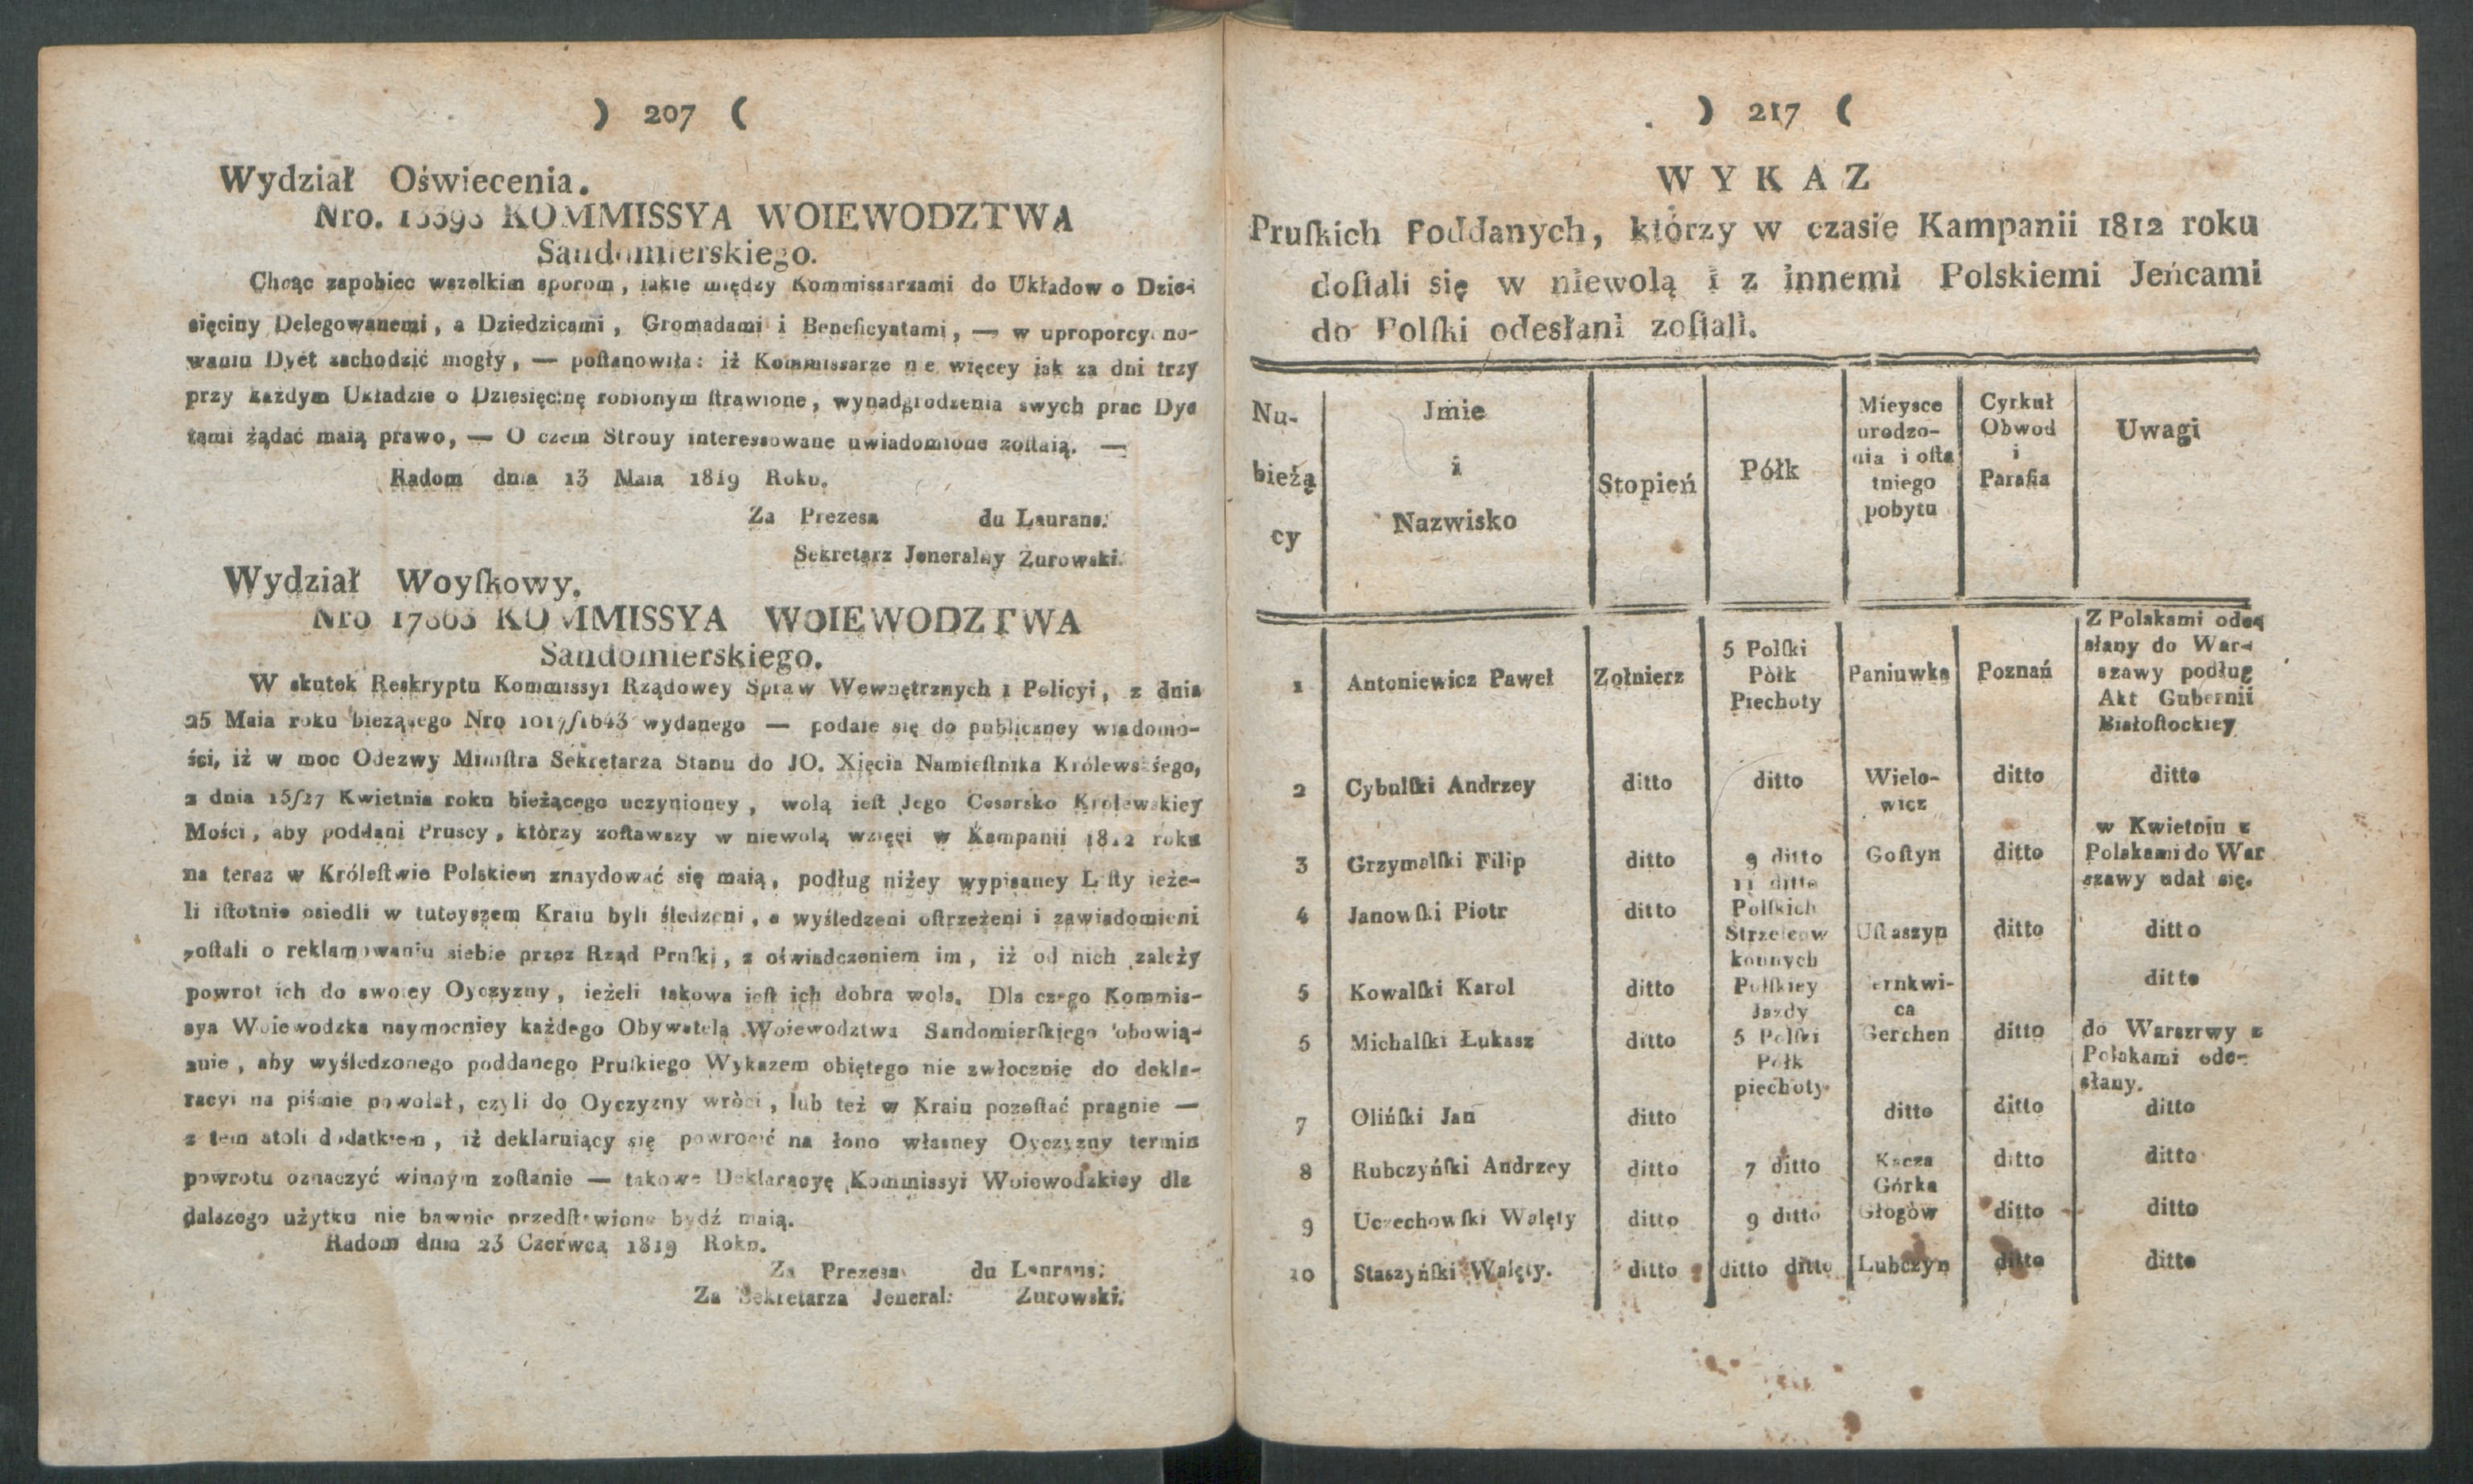 ) 207 (
Wydział Oświecenia.
Nro. 13393 KOMMISSYA WOIEWODZTWA
Sandomierskiego.
Chcąc zapobiec wszelkim sporom, iakie między Kommissarzami do Układow o Dzie-
sięciny Delegowanemi, a Dziedzicami, Gromadami i Beneficyatami, — w uproporcyno-
waniu Dyet zachodzić mogły, — poſtanowiła: iż Kommissarze nie więcey iak za dni trzy
przy każdym Układzie o Dziesięcinę robionym ſtrawione, wynadgrodzenia swych prac Dye
tami żądać maią prawo, — O czem Strony interessowane uwiadomione zoſtaią. —
Radom dnia 13 Maia 1819 Roku.
Za Prezesa du Laurans.
Sekretarz Jeneralny Zurowski.
Wydział Woyſkowy.
Nro 17863 KOMMISSYA WOIEWODZTWA
Sandomierskiego.
W skutek Reskryptu Kommissyi Rządowey Spraw Wewnętrznych i Policyi, z dnia
25 Maia roku bieżącego Nro 1017/1643 wydanego — podaie się do publiczney wiadomo-
ści, iż w moc Odezwy Miniſtra Sekretarza Stanu do JO. Xięcia Namieſtnika Królewskiego,
z dnia 15/27 Kwietnia roku bieżącego uczynioney, wolą ieſt Jego Cesarsko Królewskiey
Mości, aby poddani Pruscy, którzy zoſtawszy w niewolą wzięci w Kampanii 1812 roku
na teraz w Króleſtwie Polskiem znaydować się maią, podług niżey wypisaney Liſty ieże-
li iſtotnie osiedli w tuteyszem Kraiu byli śledzeni, a wyśledzeni oſtrzeżeni i zawiadomieni
zoſtali o reklamowaniu siebie przez Rząd Pruſki, z oświadczeniem im, iż od nich zależy
powrot ich do swoiey Oyczyzny, ieżeli takowa ieſt ich dobra wola. Dla czego Kommis-
sya Woiewodzka naymocniey każdego Obywatela Woiewodztwa Sandomierſkiego obowią-
zuie, aby wyśledzonego poddanego Pruſkiego Wykazem obiętego nie zwłocznie do dekla-
racyi na piśmie powołał, czyli do Oyczyzny wróci, lub też w Kraiu pozoſtać pragnie —
z tem atoli dodatkiem, iż deklaruiący się powrocić na łono własney Oyczyzny termin
powrotu oznaczyć winnym zoſtanie — takowe Deklaracyę Kommissyi Woiewodzkiey dla
dalszego użytku nie bawnie przedſtawione bydź maią.
Radom dnia 23 Czerwca 1819 Roku.
Za Prezesa du Laurans.
Za Sekretarza Jeneral: Zurowski.
) 217 (
WYKAZ
Pruſkich Poddanych, którzy w czasie Kampanii 1812 roku
doſtali się w niewolą i z innemi Polskiemi Jeńcami
do Polſki odesłani zoſtali.
Nu-
bieżą
cy
Jmie
i
Nazwisko
Stopień
Półk
Mieysce
urodzo-
nia i oſta
tniego
pobytu
Cyrkuł
Obwod
i
Parafia
Uwagi
1 Antoniewicz Paweł Zołnierz 5 Polſki
Półk
Piechoty Paniuwka Poznań Z Polakami ode
słany do War-
szawy podług
Akt Gubernii
Białoſtockiey
2 Cybulſki Andrzey ditto ditto Wielo-
wicz ditto ditto
3 Grzymalſki Filip ditto 9 ditto Goſtyn ditto w Kwietniu z
Polakami do War
szawy udał się.
4 Janowſki Piotr ditto 11 ditto
Polſkich
Strzelcow
konnych Uſtaszyn ditto ditto
5 Kowalſki Karol ditto Polſkiey
Jazdy ernkwi-
ca ditto
5 Michalſki Łukasz ditto 5 Polſki
Półk
piechoty Gerchen ditto do Warszrwy z
Polakami ode-
słany.
7 Olińſki Jan ditto ditto ditto ditto
8 Rubczyńſki Andrzey ditto 7 ditto Kacza
Górka ditto ditto
9 Uczechowſki Walęty ditto 9 ditto Głogów ditto ditto
10 Staszyńſki Walęty. ditto ditto ditto Lubczyn ditto ditto